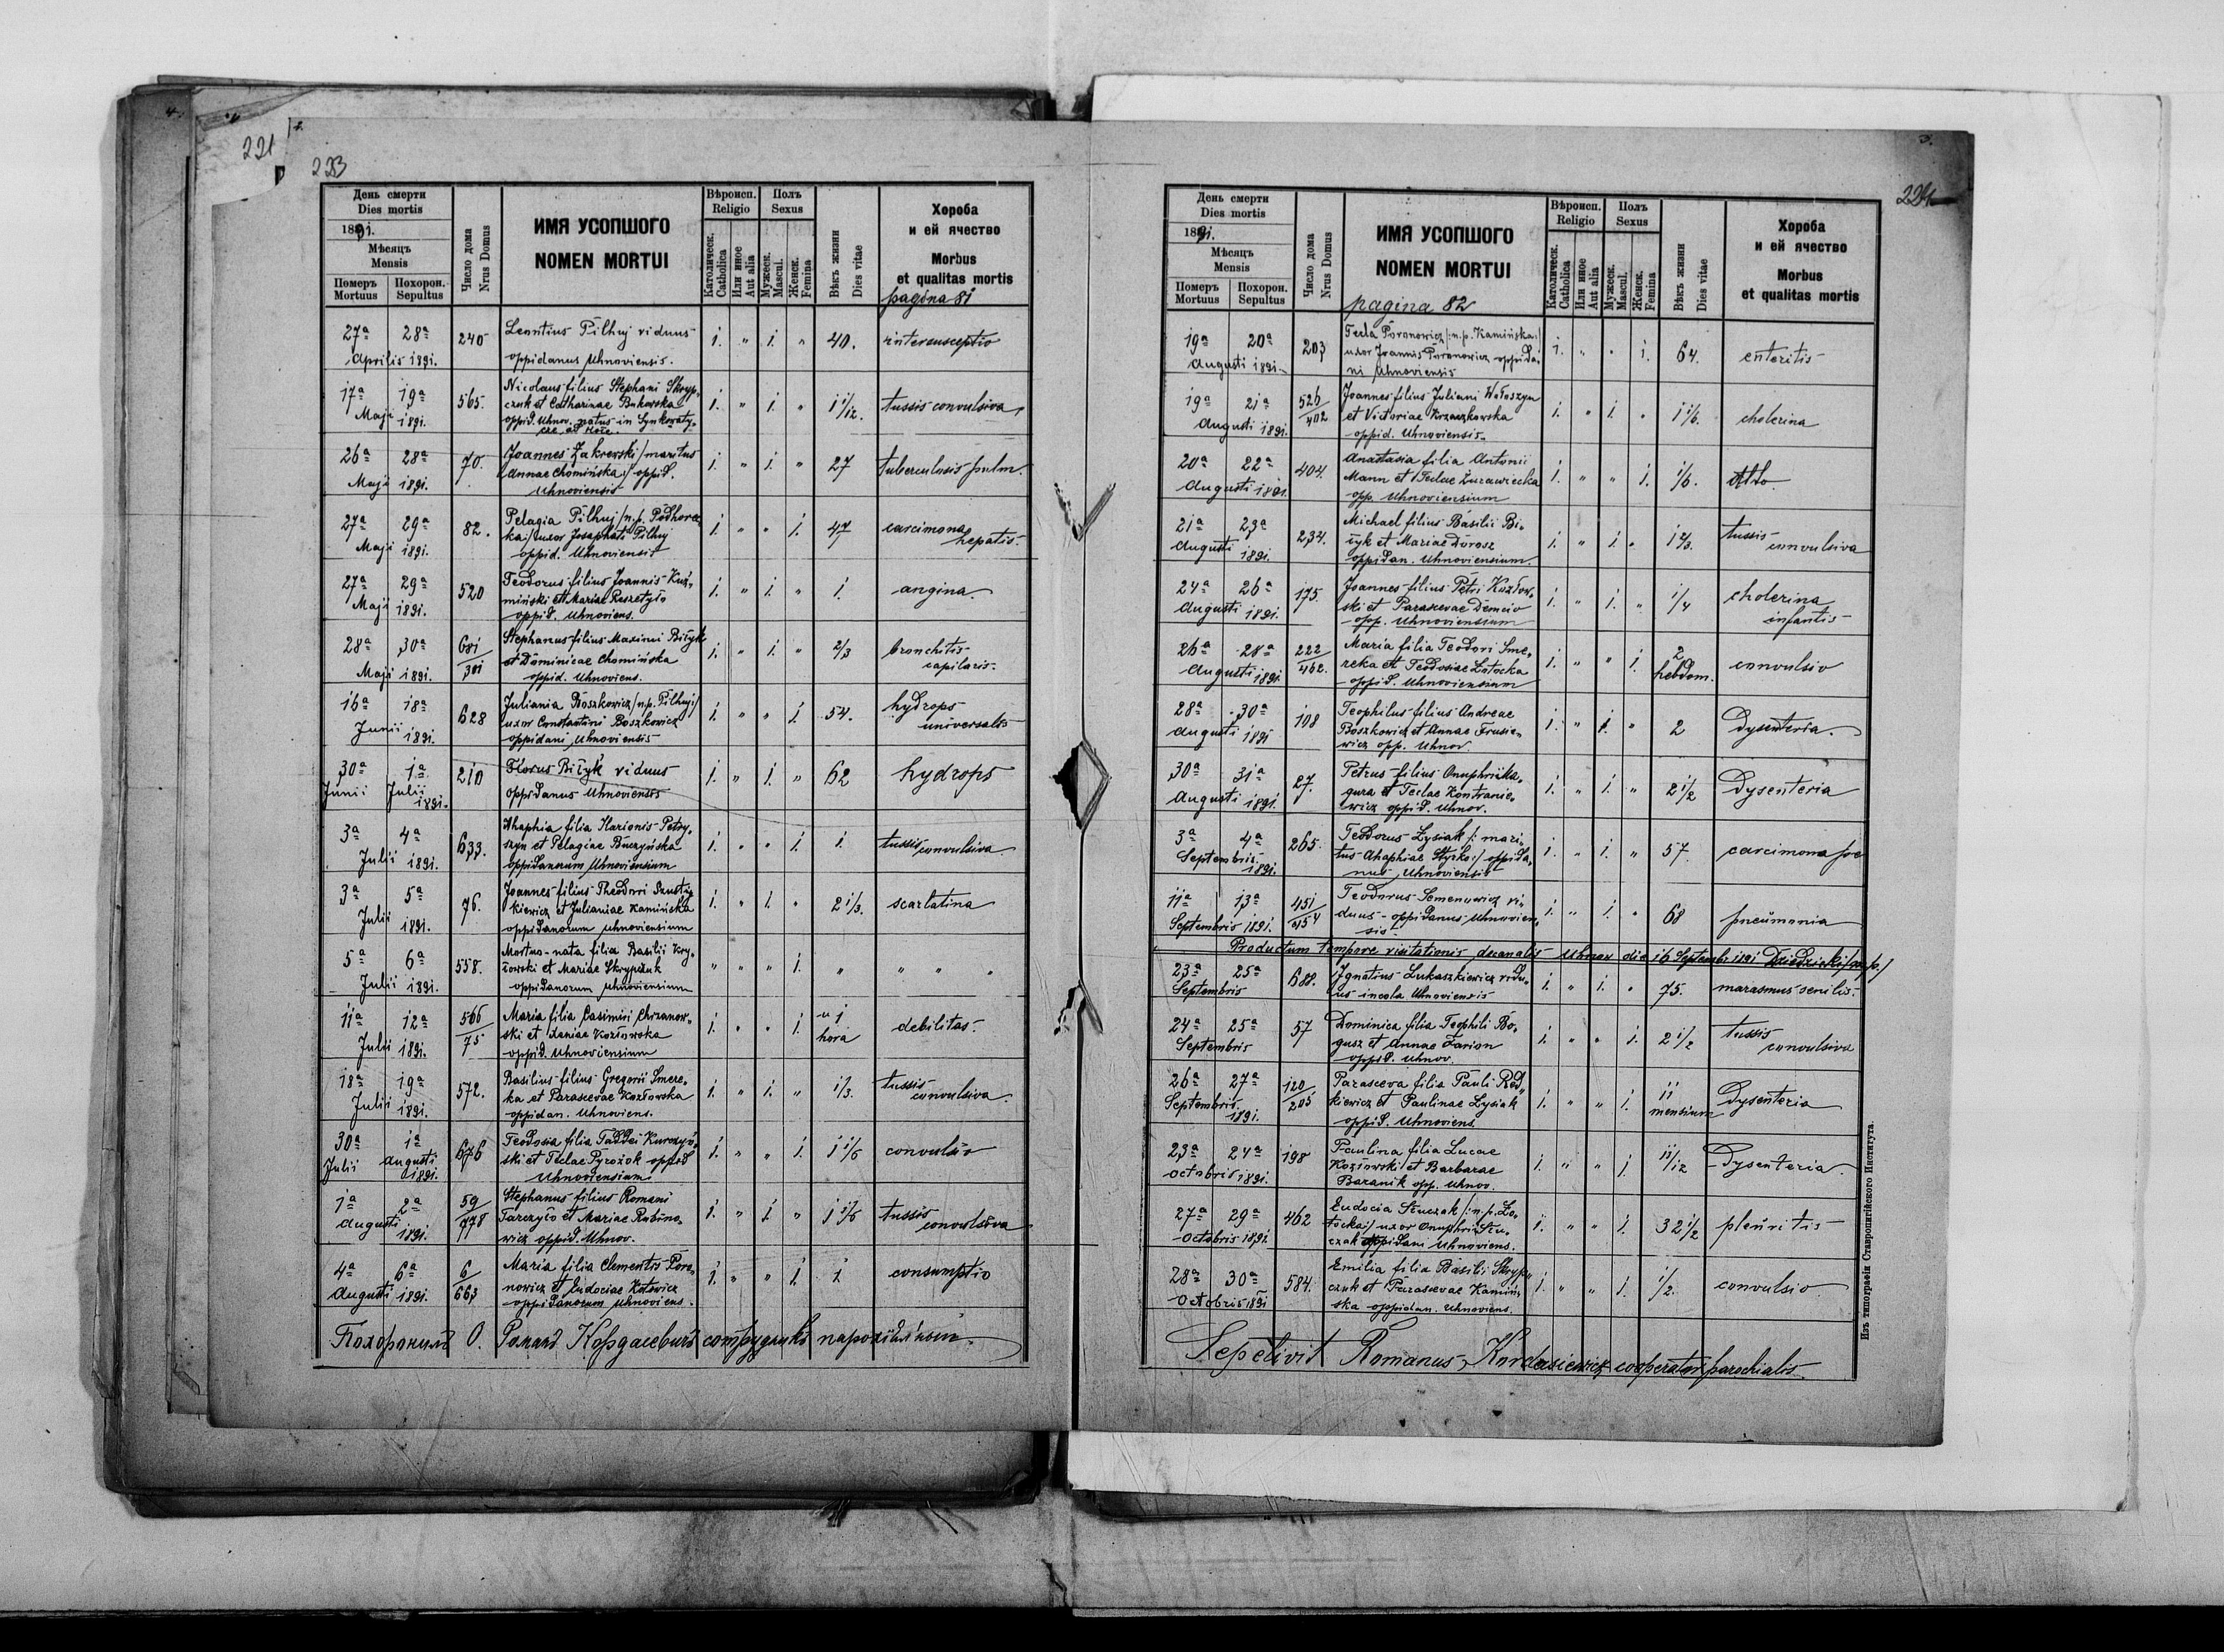 221
223
День смерти
Dies mortis
1891.
Мѣсяцъ
Mensis
Померъ
Mortuus
Похорон.
Sepultus
Число дома
Nrus Domus
ИМЯ УСОПШОГО
NOMEN MORTUI
Вѣроисп.
Religio
Католическ.
Catholica
Или иное
Aut alia
Полъ
Sexus
Мужеск.
Mascul.
Женск.
Femina
Вѣкъ жизни
Dies vitae
Хороба
и ей ячество
Morbus
et qualitas mortis
pagina 81
27a 28a 240 Leontius Pilhuj viduus 1. " 1. " 40.
Aprilis 1891. oppidanus Uhnoviensis.
17a 19a 565. Nicolaus filius Stephani Skryp-
czuk et Catharinae Bukowska 1. " 1. " 1 1/12. tussis convulsiva
Maji 1891. oppid. Uhnov. natus in
26a 28a 70. Joannes Zakrewski /maritus 1. " 1. " 27 tuberculosis pulm.
Annae Chomińska:/ oppid.
Maji 1891. Uhnoviensis
27a 29a 82. Pelagia Pilhuj /n.p. Podhorec-
ka:/ uxor Josaphati Pilhuj 1. " " 1. 47 carcimona hepatis
Maji 1891. oppid. Uhnoviensis
27a 29a 520 Teodorus filius Joannis Kuź-
miński et Mariae Reszetyło 1. " 1. " 1. angina
Maji 1891. oppid. Uhnoviens.
28a 30a 681/301 Stephanus filius Maximi Biłyk
et Dominicae Chomińska 1. " 1. " 2/3 bronchitis capilaris
Maji 1891. oppid. Uhnoviens.
16a 18a 628 Juliania Boszkowicz /n.p. Pilhuj/
uxor Constantini Boszkowicz 1. " " 1. 54. hydrops universalis
Junii 1891. oppidani Uhnoviensis
30a Junii 1a Julii 1891. 210 Florus Biłyk viduus 1. " 1. " 62 hydrops
oppidanus Uhnoviensis
3a 4a 633. Ahaphia filia Ilarionis Petry-
szyn et Pelagiae Buczyńska 1. " " 1. 1. tussis convulsiva
Julii 1891. oppidanorum Uhnoviensium
3a 5a 76. Joannes filius Theodori Szusty-
kiewicz et Julianiae Kamińska 1. " 1. " 2 1/3. scarlatina
Julii 1891. oppidanorum Uhnoviensium
5a 6a 558. Mortus-nata filia Basilii Kry-
łowski et Mariae Skrypczuk " " " 1. " " " "
Julii 1891. oppidanorum Uhnoviensium
11a 12a 566/75 Maria filia Casimiri Chrzanow-
ski et Xeniae Kozłowska 1. " " 1. 1 hora debilitas
Julii 1891. oppid. Uhnoviensium
18a 19a 572. Basilius filius Gregorii Smere-
ka et Parascevae Kozłowska 1. " 1. " 1/3. tussis convulsiva
Julii 1891. oppidan. Uhnoviens.
30a Julii 1a Augusti 1891. 676 Teodosia filia Taddei Kurczyń-
ski et Teclae Pyrożok oppid 1. " " 1. 1 1/6 convulsio
Uhnoviensium
1a 2a 59/778 Stephanus filius Romani
Tarczyło et Mariae Rubino- 1. " 1. " 1 1/6 tussis convulsiva
Augusti 1891. wicz oppid. Uhnov.
4a 6a 6/663 Maria filia Clementis Poro-
nowicz et Eudociae Kotowicz 1. " " 1. 1 consumptio
Augusti 1891. oppidanorum Uhnoviens.
Похоронилъ О. Романъ Кордасевичъ сотрудникъ парохіяльный.
224
День смерти
Dies mortis
1891.
Мѣсяцъ
Mensis
Померъ
Mortuus
Похорон.
Sepultus
Число дома
Nrus Domus
ИМЯ УСОПШОГО
NOMEN MORTUI
pagina 82
Вѣроисп.
Religio
Католическ.
Catholica
Или иное
Aut alia
Полъ
Sexus
Мужеск.
Mascul.
Женск.
Femina
Вѣкъ жизни
Dies vitae
Хороба
и ей ячество
Morbus
et qualitas mortis
19a 20a 203 Tecla Poronowicz /:n.p. Kamińska:/
uxor Joannis Poronowicz oppida- 1. " " 1. 64. enteritis
Augusti 1891. ni Uhnoviensis
19a 21a 526/402 Joannes filius Juliani Wołoszyn
et Victoriae Krzaczkowska 1. " 1. " 1 1/6. cholerina
Augusti 1891. oppid. Uhnoviensis.
20a 22a 404. Anastasia filia Antonii
Mann et Teclae Żurawiecka 1. " " 1. 1/6. dtto
Augusti 1891. opp. Uhnoviensium
21a 23a 234. Michael filius Basilii Bi-
łyk et Mariae Dorosz 1. " 1. " 1 2/3. tussis convulsiva
Augusti 1891. oppidan. Uhnoviensium.
24a 26a 175. Joannes filius Petri Kozłow-
ski et Parascevae Demcio 1. " 1. " 1/4 cholerina infantis
Augusti 1891. opp. Uhnoviensium
26a 28a 222/462. Maria filia Teodori Sme-
reka et Teodosiae Łotocka 1. " " 1. 2 hebdom. convulsio
Augusti 1891 oppid. Uhnoviensium
28a 30a 108 Teophilus filius Andreae
Boszkowicz et Annae Frusie- 1. " 1. " 2 Dysenteria.
Augusti 1891 wicz opp. Uhnov.
30a 31a 27. Petrus filius Onuphrii Ka-
gura et Teclae Kontranie- 1. " 1. " 2 1/2 Dysenteria
Augusti 1891. wicz oppid. Uhnov.
3a 4a 265. Teodorus Łysiak /: mari-
tus Ahaphiae Styrko:/ oppida- 1. " 1. " 57. carcimona
Septembris 1891. nus Uhnoviensis
11a 13a 451/454 Teodorus Semenowicz vi-
duus - oppidanus Uhnovien- 1. " 1. " 68 pneumonia
Septembris 1891. sis
Productum tempore visitationis decanalis Uhnov die 16 Septembr 1891 Dziedzicki /m.p./
23a 25a 688. Ignatius Lukaszkiewicz vidu- 1. " 1. " 75. marasmus senilis.
Septembris us incola Uhnoviensis
24a 25a 57 Dominica filia Teophili Bo-
gusz et Annae Farion 1. " " 1. 2 1/2 tussis convulsiva
Septembris oppid. Uhnov.
26a 27a 120/205 Parasceva filia Pauli Rod-
kiewicz et Paulinae Lysiak 1. " " 1. 11 mensium Dysenteria
Septembris 1891. oppid. Uhnoviens.
23a 24a 198 Paulina filia Lucae
Kozłowski et Barbarae 1. " " 1. 11/12 Dysenteria
Octobris 1891. Baranik opp. Uhnov.
27a 29a 462 Eudocia Stuczak /:n.p. Ło-
tocka:/ uxor Onuphrii Stu- 1. " " 1. 32 1/2 pleuritis
Octobris 1891. czak oppidani Uhnoviens.
28a 30a 584. Emilia filia Basilii Skryp-
czuk et Parascevae Kamiń- 1. " " 1. 1/2. convulsio
Octobris 1891 ska oppidan. Uhnoviens.
Sepelivit Romanus Kordasiewicz cooperator parochialis.
Изъ типографіи Ставропигійского Института.